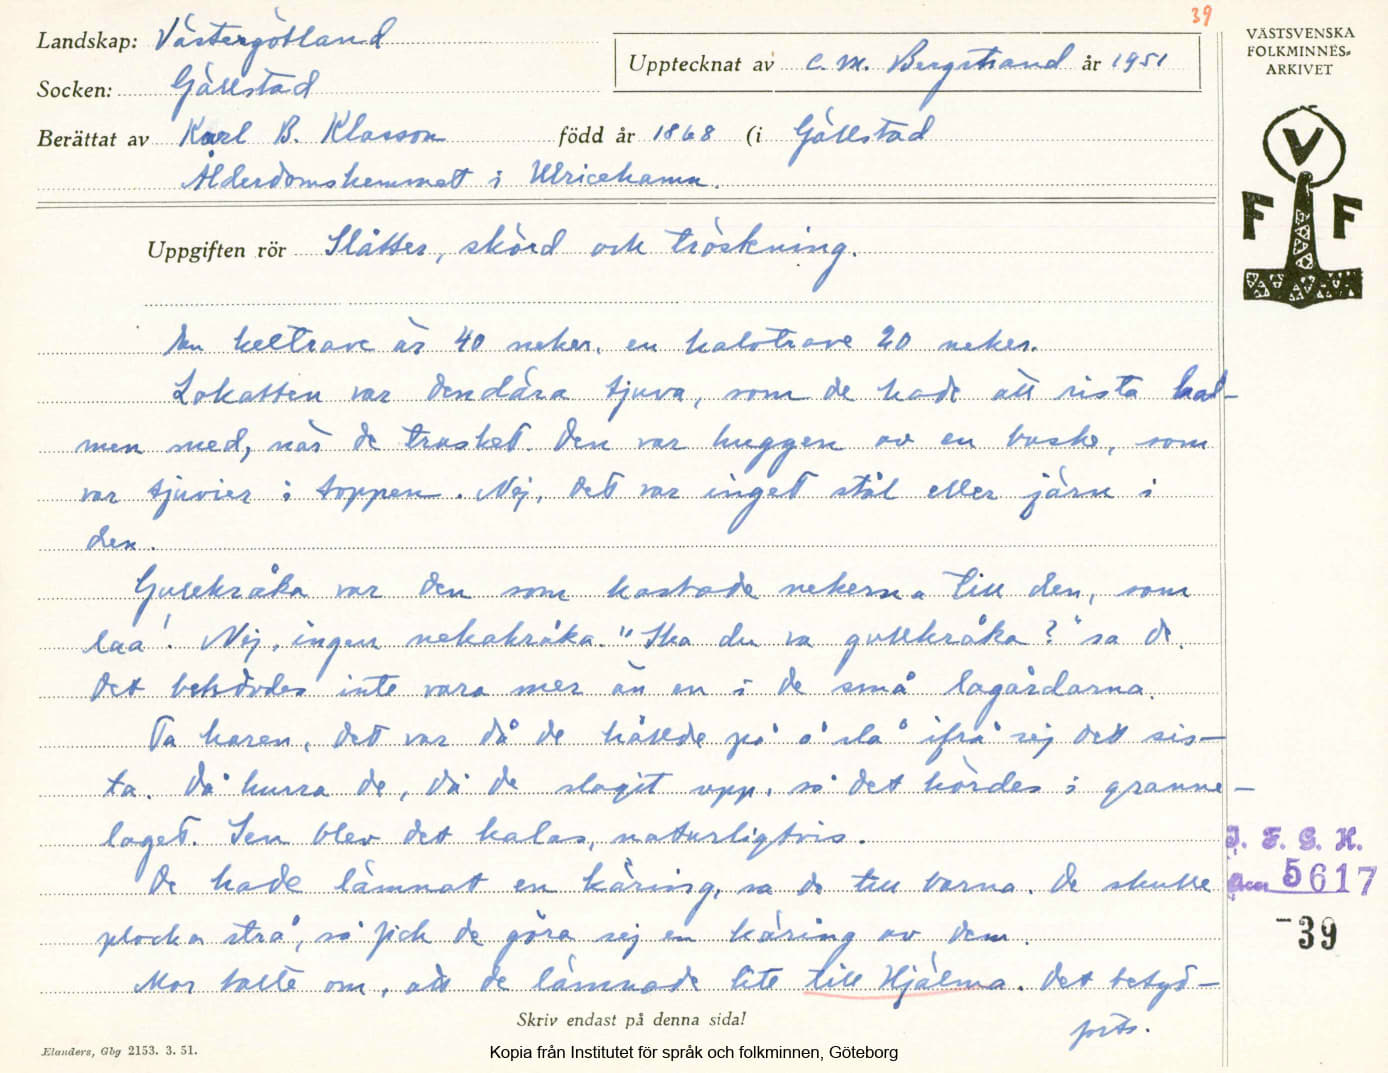 39
Landskap: Västergötland
VÄSTSVENSKA
FOLKMINNES-
ARKIVET
Upptecknat av C. M. Bergstrand år 1951
Socken: Gällstad
Berättat av Karl B. Klasson född år 1868 (i Gällstad
Ålderdomshemmet i Ulricehamn.
V
F F
Uppgiften rör Slåtter, skörd och tröskning.
En heltrave är 40 neker, en halvtrave 20 neker.
Lokatten var dendära tjuva, som de hade att rista hal-
men med, när de trösket. Den var huggen av en buske, som
var tjuvier i toppen. Nej, det var inget stål eller järn i
den.
Gullkråka var den som kastade nekerna till den, som
laa'. Nej, ingen nekakråka. "Ska du va gullkråka?" sa de.
Det behövdes inte vara mer än en i de små lagårdarna.
Ta haren, det var då de hållde på å slå ifrå sej det sis-
ta. Då hurra de, då de slagit upp, så det hördes i granne-
laget. Sen blev det kalas, naturligtvis.
De hade lämnat en käring, sa de till barna. De skulle
plocka strå, så fick de göra sej en käring av dem.
Mor talte om, att de lämnade lite till Hjälma. Det betyd-
forts.
Skriv endast på denna sida!
Elanders, Gbg 2153. 3. 51.
I. F. G. H.
5617
-39
Kopia från Institutet för språk och folkminnen, Göteborg